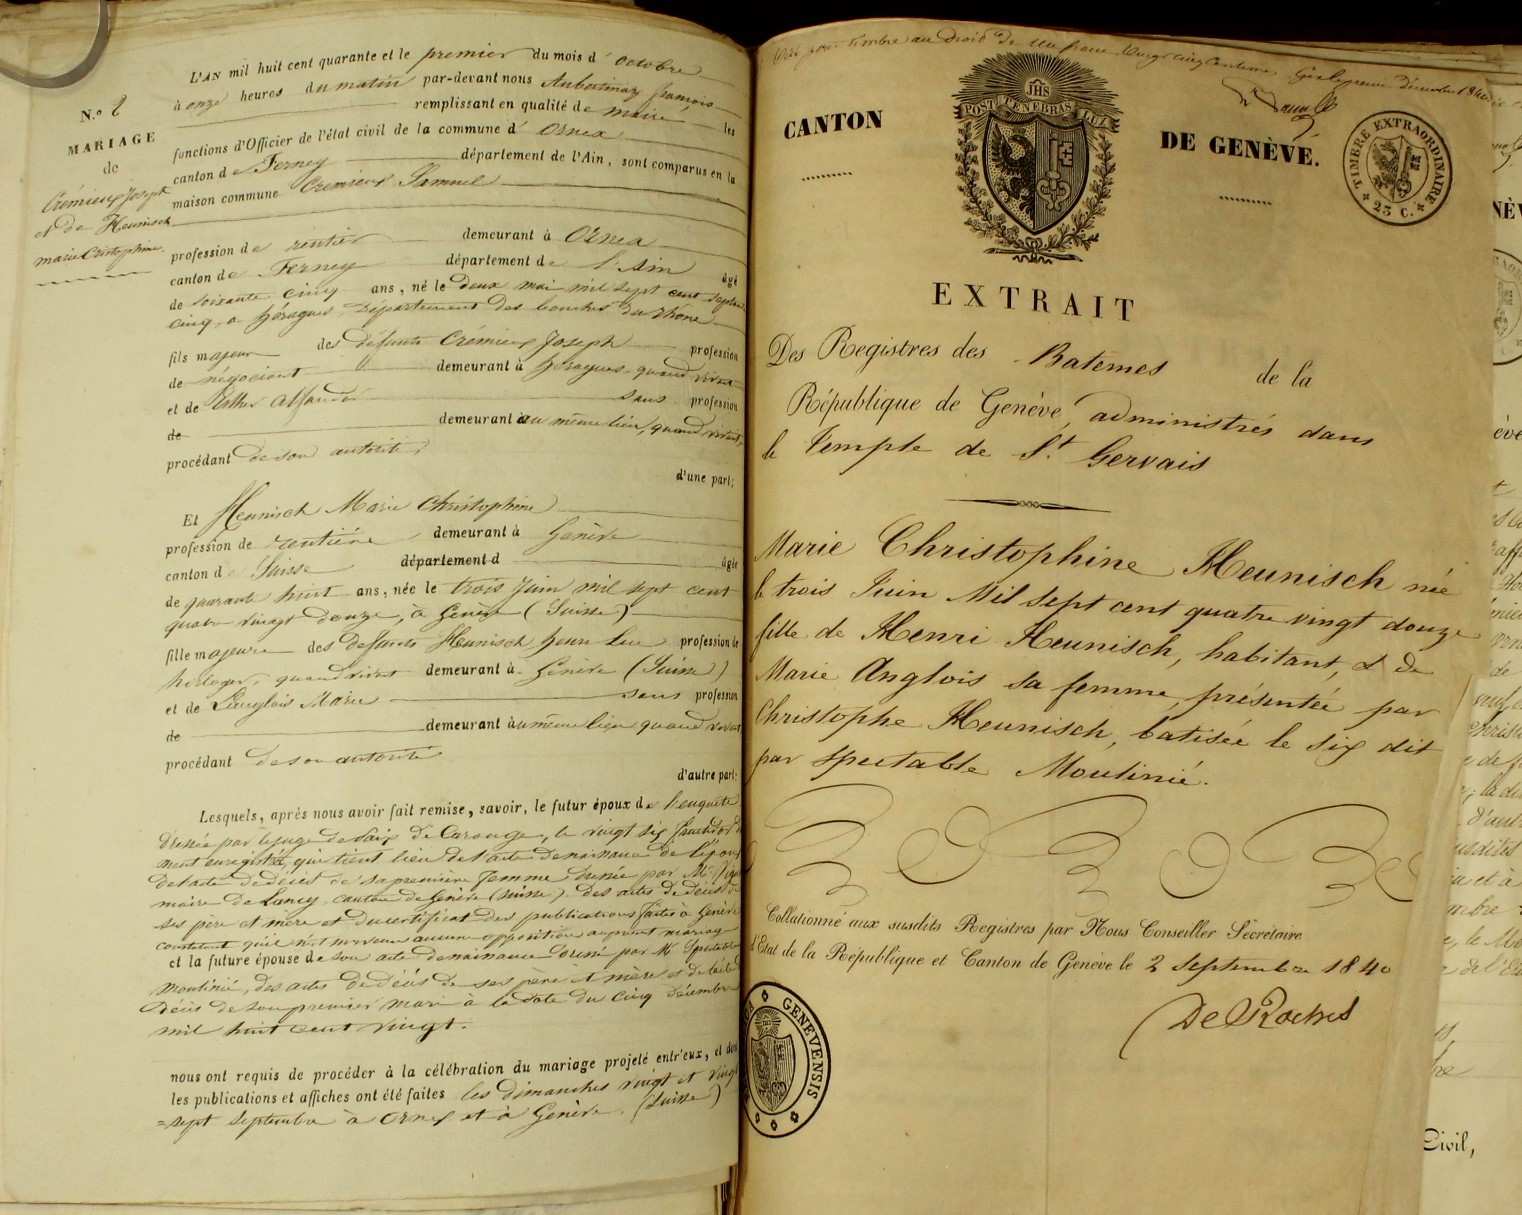 N.º 2
MARIAGE
de
Crémieux Joseph
et de Heunisch
marie Cristophine.
L'AN mil huit cent quarante et le premier du mois d' octobre
à onze heures du matin par-devant nous
remplissant en qualité de maire les
fonctions d'Officier de l'état civil de la commune d' Ornex
canton de Ferney département de l'Ain, sont comparus en la
maison commune Crémieux Samuel
profession de rentier demeurant à Ornex
canton de Ferney département de l'Ain âgé
de soixante cinq ans, né le deux mai mil sept cent
cinq, à département des bouches du Rhône
fils majeur des défunts Crémieux Joseph profession
de négociant demeurant à quand vivait
et de Esther sans profession
de demeurant au même lieu, quand vivait,
procédant de son autorité,
d'une part;
Et Heunisch Marie Christophine
profession de rentière demeurant à Genève
canton de Suisse département d âgée
de quarante huit ans, née le trois juin mil sept cent
quatre vingt douze, à Genève (Suisse)
fille majeure des deffunts Heunisch profession de
horloger, quand vivait demeurant à Genève (Suisse)
et de Langlois Marie sans profession
de demeurant au même lieu quand vivait
procédant de son autorité
d'autre part;
Lesquels, après nous avoir fait remise, savoir, le futur époux de l'enquête
dressée par le juge de Paix de Carouge, le vingt six
ment enregistré, qui tient lieu de l'acte de naissance de l'époux
de l'acte de décès de sa première femme, dressé par Mr
maire de Lancy, canton de Genève (Suisse) des actes de décès de
ses père et mère et du certificat des publications faites à Genève
constatant qu'il n'est survenu aucune opposition au présent mariage
et la future épouse de son acte de naissance dressé par Mr Spectable
moutinié, des actes de décès de ses père et mère et de l'acte de
décès de son premier mari à la date du cinq décembre
mil huit cent vingt.
nous ont requis de procéder à la célébration du mariage projeté entr'eux, et dont
les publications et affiches ont été faites les dimanches vingt et vingt
=sept septembre à Ornex et à Genève. (Suisse)
Visé pour timbre au droit de un franc vingt cinq centimes
CANTON DE GENÈVE.
JHS
POST TENEBRAS LUX
TIMBRE EXTRAORDINAIRE
25 C.
EXTRAIT
Des Registres des Batemes de la
République de Genève, administrés dans
le Temple de St. Gervais
Marie Christophine Heunisch née
le trois Juin Mil sept cent quatre vingt douze
fille de Henri Heunisch, habitant, & de
Marie Anglois sa femme, présentée par
Christophe Heunisch, batisée le six dit
par spectable Moutinié.
Collationné aux susdits Registres par Nous Conseiller Secrétaire
d'Etat de la République et Canton de Genève le 2 Septembre 1840
De Roches
GENEVENSIS
Civil,